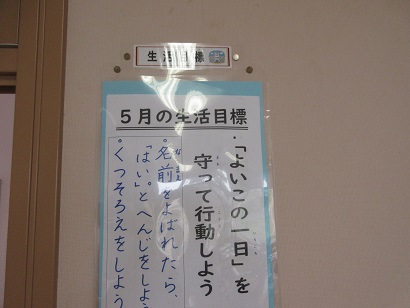 生活目標
5月の生活目標
・「よいこの一日」を
守って行動しよう
・名前をよばれたら、
「はい。」とへんじをしよう
・くつそろえをしよう